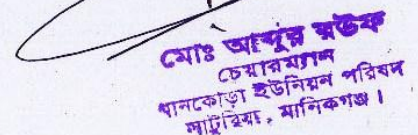 মোঃ আব্দুর রউফ
চেয়ারম্যান
ধানকোড়া ইউনিয়ন পরিষদ
সাটুরিয়া, মানিকগঞ্জ।